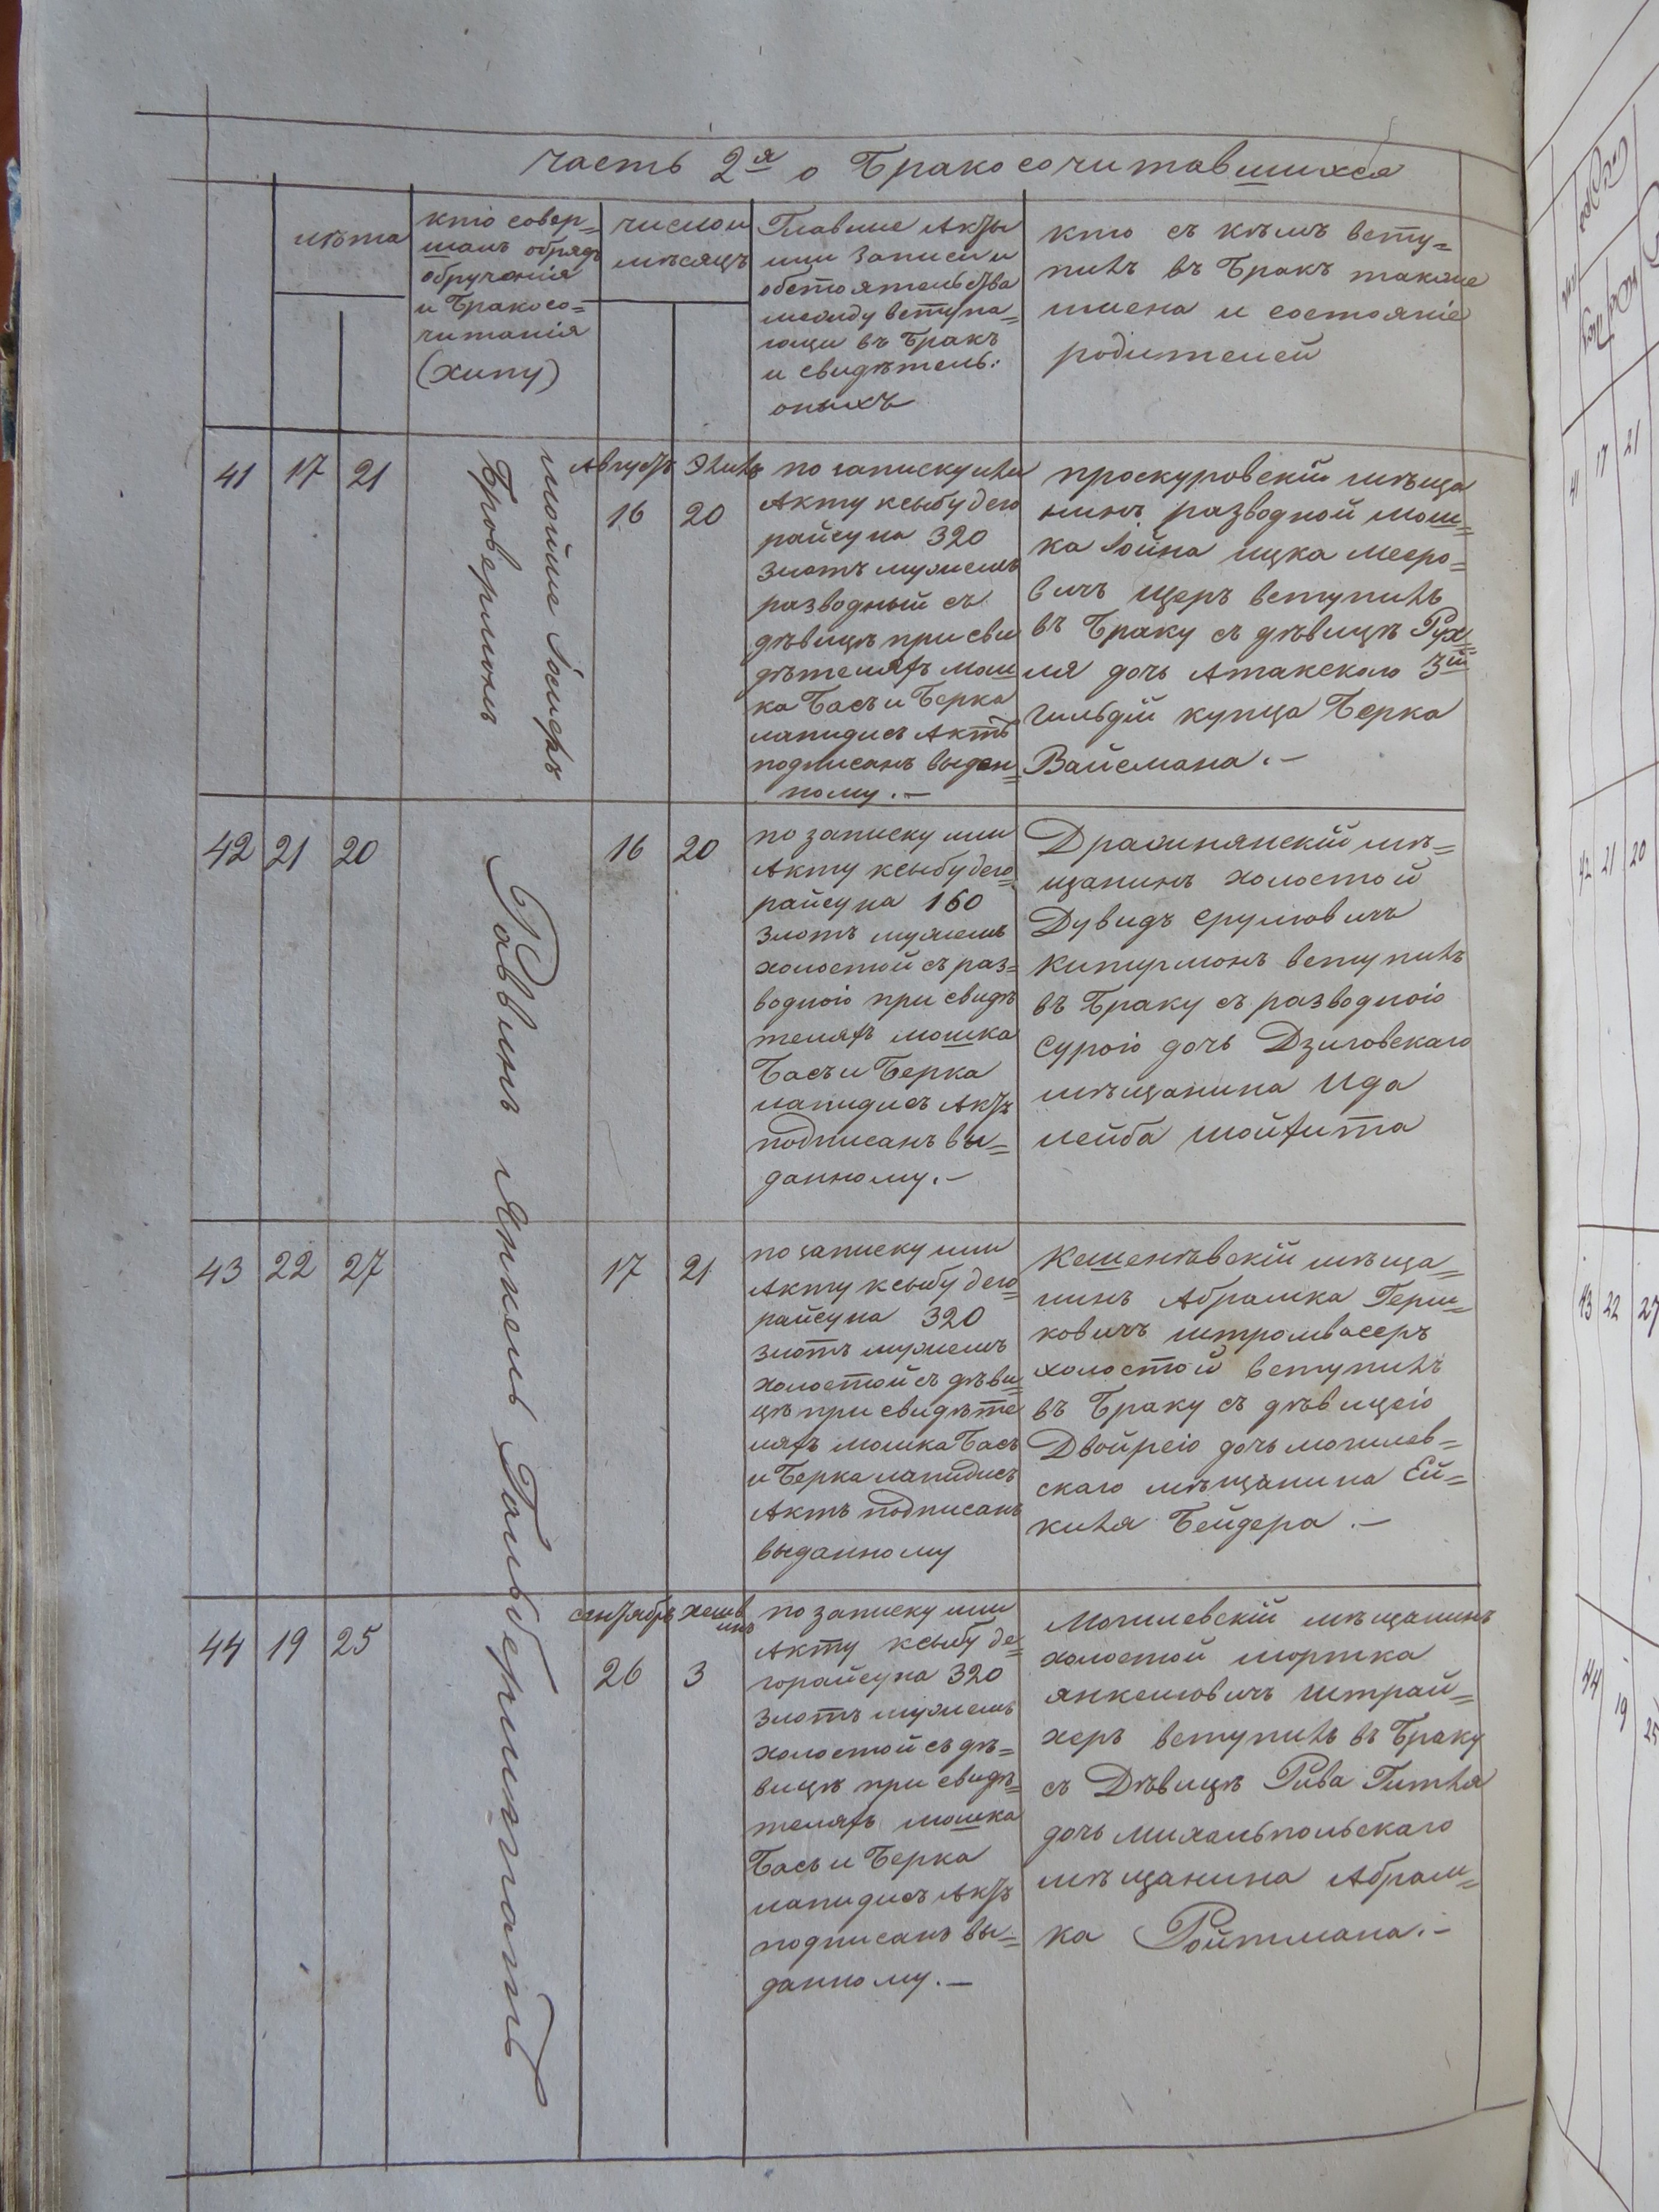 часть 2я о Бракосочитавшихся
лѣта
кто совер=
шалъ обрядъ
обручения
и Бракосо=
читанія
(хипу)
число и
мѣсяцъ
Главные Акты
или записи и
обстоятельства
между вступа=
ющи въ Бракъ
и свидѣтель:
оныхъ
кто съ кѣмъ всту=
пилъ въ Бракъ также
имена и состояніе
родителей
41 17 21
Августъ Элилъ
16 20
по запискu или
Акту ксыбу дего
райсу на 320
злотъ мужемъ
разводный съ
дѣвицѣ при сви
дѣтеляхъ Мош
ка Басъ и Берка
лапидисъ Актъ
подписанъ выдан=
ному.—
проскуровскій мѣща
нинъ разводной Мош=
ка Іойна ицка Мееро=
вичъ Щеръ вступилъ
въ Браку съ дѣвицѣ Рух=
ля дочь Атакского 3й
гильдіи купца Берка
Вайсмана.—
42 21 20
16 20
по записку или
Акту ксыбу дего=
райсу на 160
злотъ мужемъ
холостой съ раз=
водною при свидѣ
теляхъ мошка
Басъ и Берка
лапидисъ Актъ
подписанъ вы=
данному.—
мѣ=
щанинъ холостой
Дувидъ Срулювичъ
вступилъ
въ Браку съ разводною
Сурою дочь Дзиговскаго
мѣщанина Ида
лейба
43 22 27
17 21
по записку или
Акту ксыбу дего=
райсу на 320
злотъ мужемъ
холостой съ дѣви=
цѣ при свидѣте
ляхъ мошка Басъ
и Берка лапидисъ
Актъ подписанъ
выданному
Кешенѣвскій мѣща=
нинъ Абрамка Герш=
ковичъ штромвасеръ
холостой вступилъ
въ Браку съ дѣвицею
Двойрею дочь могилев=
скаго мѣщанина Ей=
киля Бейдера.—
44 19 25
сентябръ хешв
инъ
26 3
по записку или
Акту ксыбу де=
горайсу на 320
злотъ мужемъ
холостой съ дѣ=
вицѣ при свидѣ=
теляхъ мошка
Басъ и Берка
лапидисъ Актъ
подписанъ вы=
данному.—
Могилевскій мѣщанинъ
холостой мортка
янкелювичъ штрай=
херъ вступилъ въ Браку
съ Дѣвицѣ Рива Гитля
дочь Михальпольскаго
мѣщанина Абрам=
ка Ройтмана.—
Равинъ Янкель
41 17 21
42 21 20
43 22 27
44 19 25